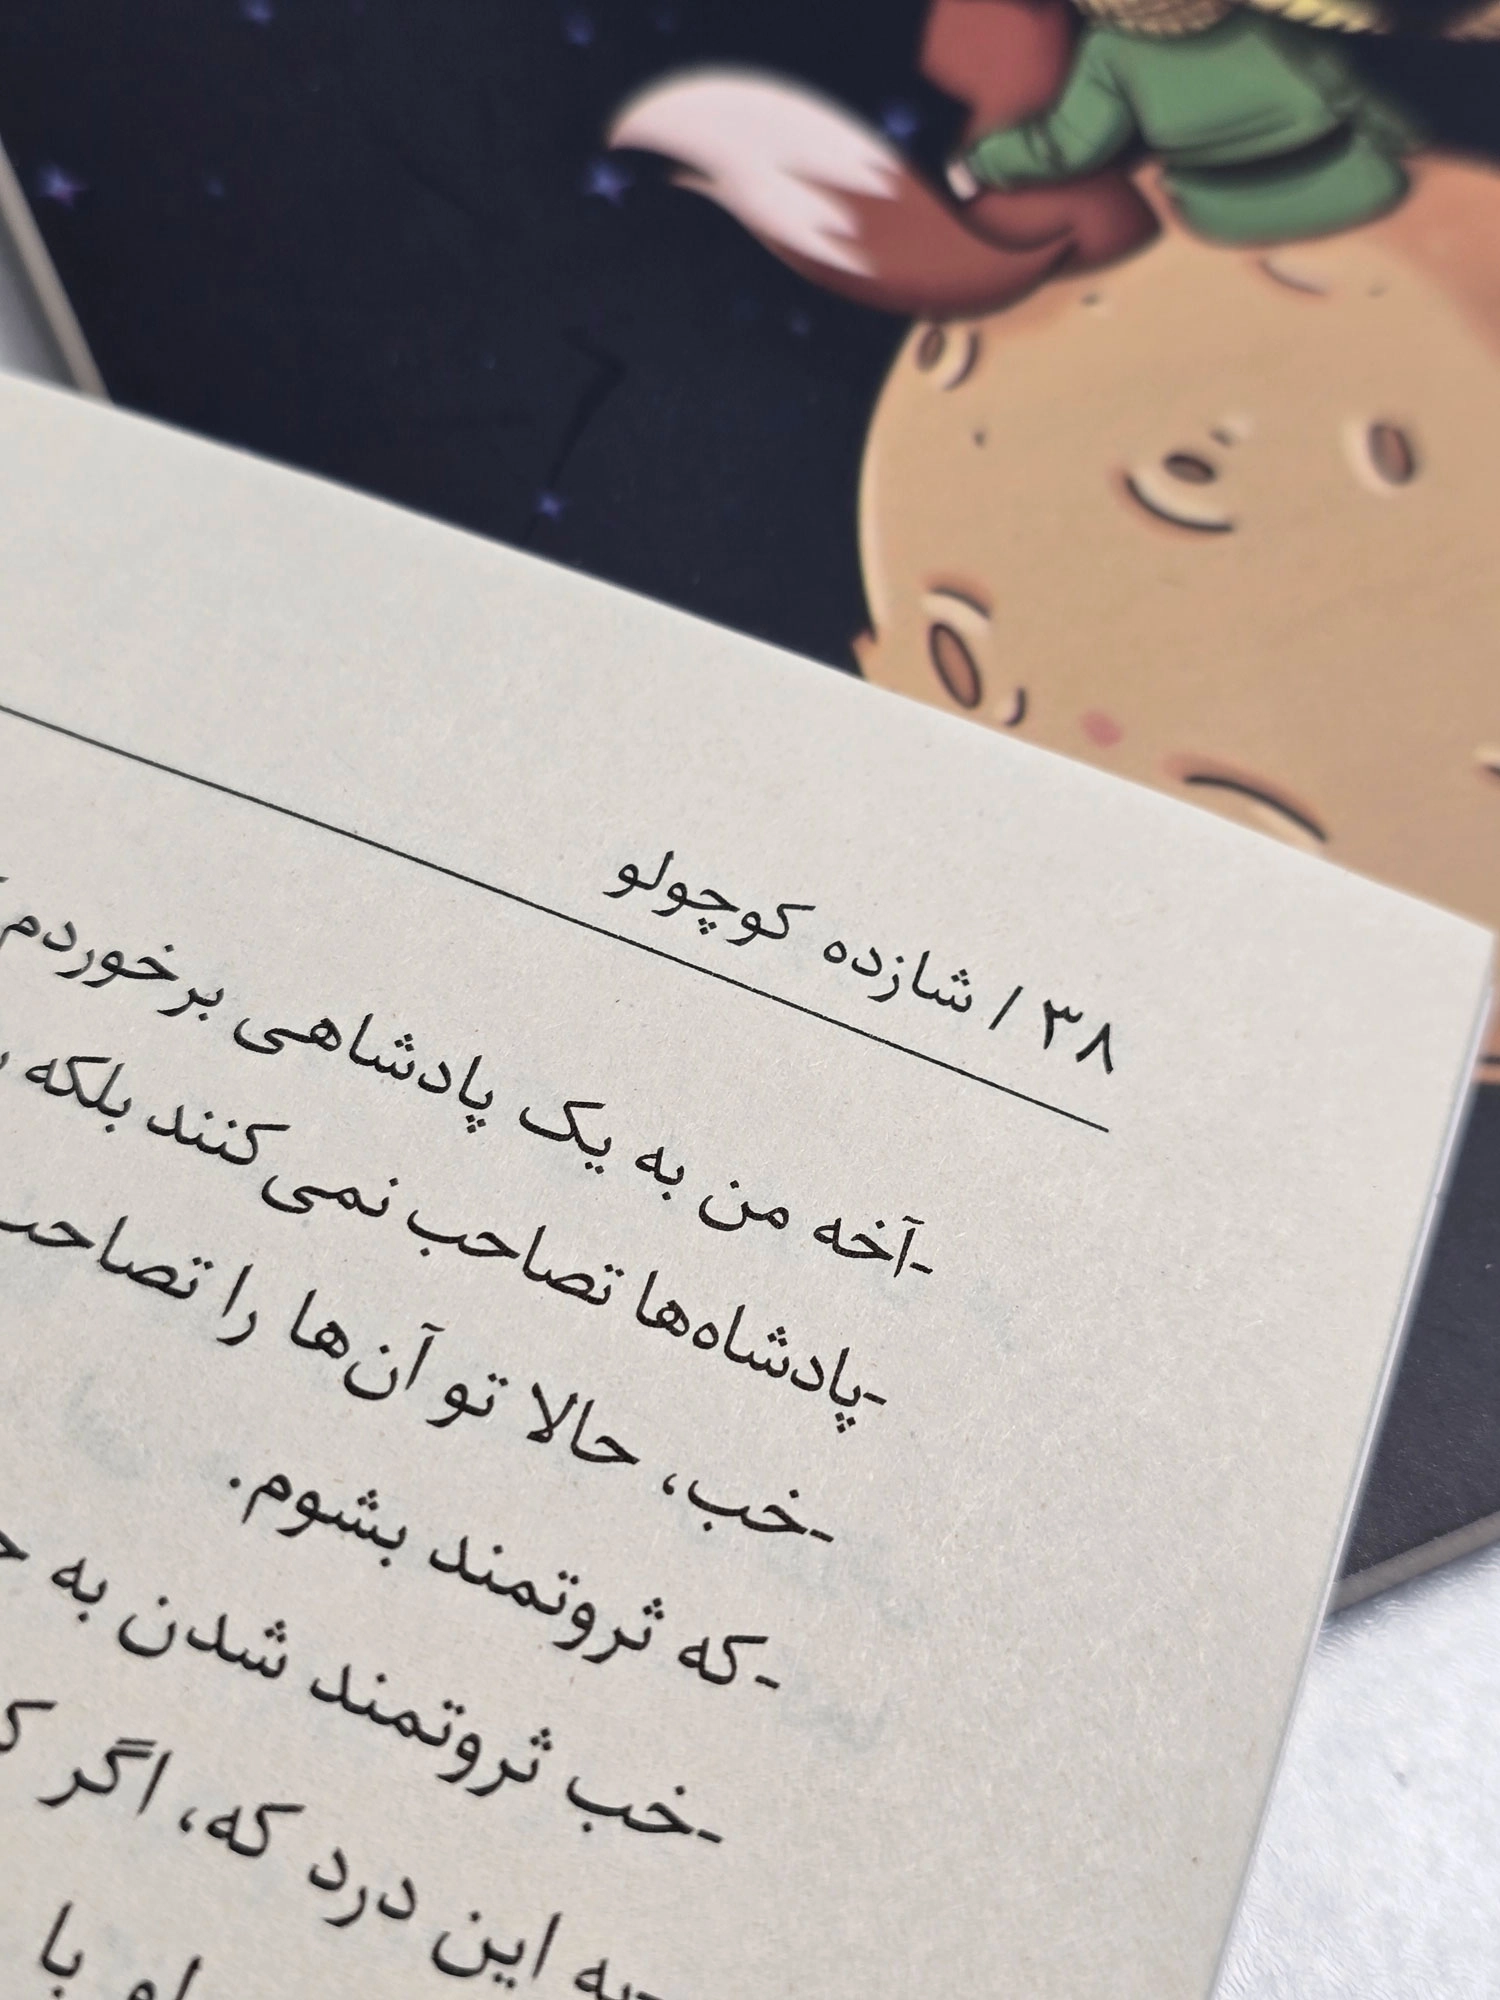 ۳۸ / شازده کوچولو
-آخه من به یک پادشاهی برخوردم
-پادشاه‌ها تصاحب نمی‌کنند بلکه
-خب، حالا تو آن‌ها را تصاحب
-که ثروتمند بشوم.
-خب ثروتمند شدن به
-به این درد که، اگر
با